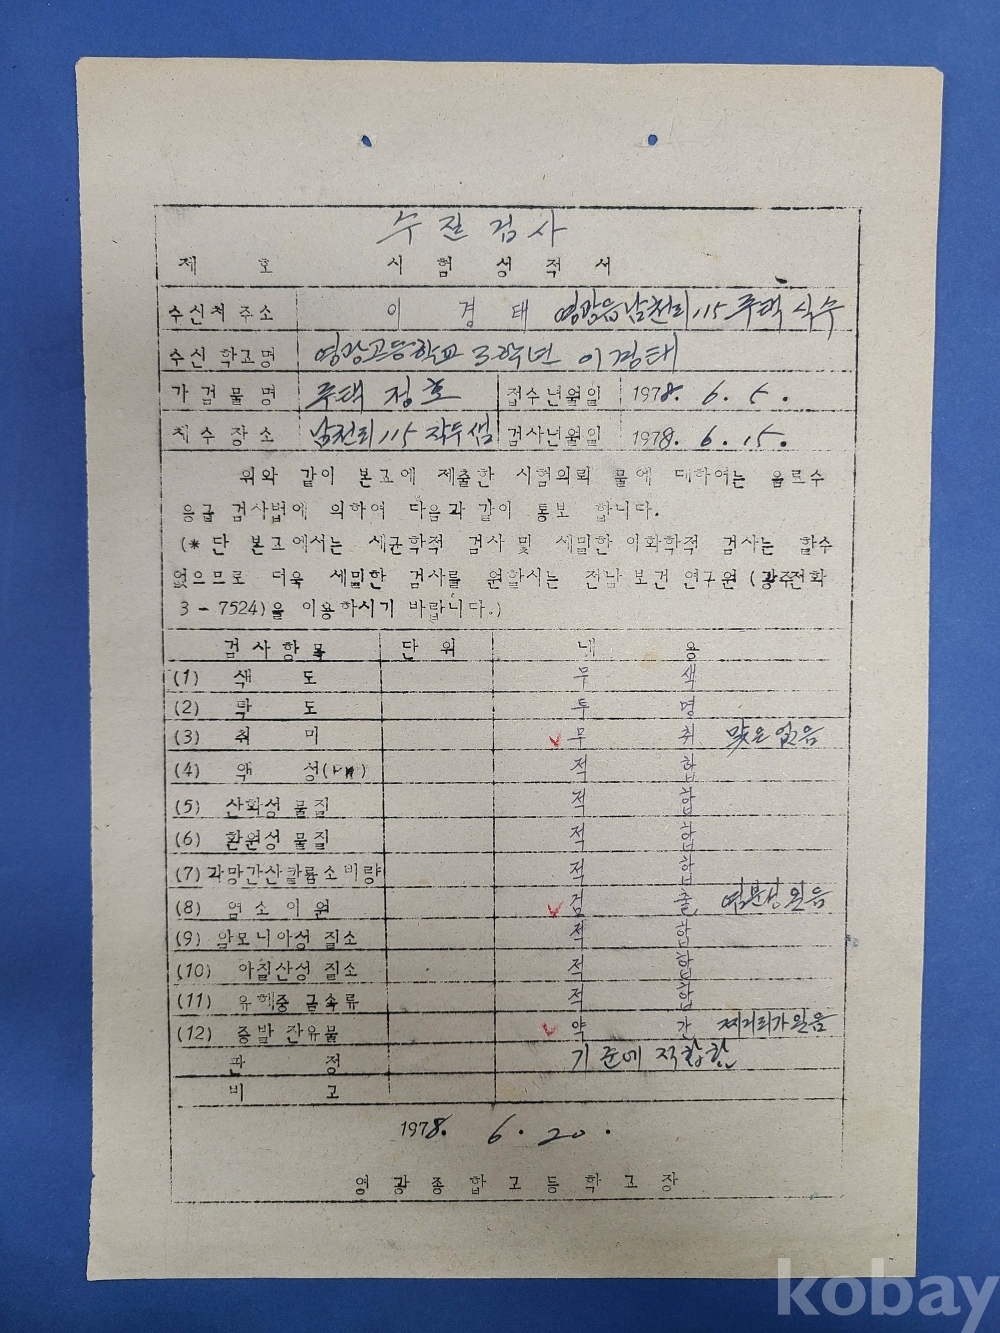 수질검사
제 호 시 험 성 적 서
수신처 주소 이 경 태 영광읍 남천리 115 주택 식수
수신 학교명 영광고등학교 3학년 이경태
가 검 물 명 주택 정호 접수년월일 1978. 6. 5.
치 수 장 소 남천리 115 작두샘 검사년월일 1978. 6. 15.
위와 같이 본교에 제출한 시험의뢰 물에 대하여는 음료수
응급 검사법에 의하여 다음과 같이 통보 합니다.
(* 단 본교에서는 세균학적 검사 및 세밀한 이화학적 검사는 할수
없으므로 더욱 세밀한 검사를 원할시는 전남 보건 연구원 (광주전화
3 - 7524)을 이용하시기 바랍니다.)
검 사 항 목 단 위 내 용
(1) 색 도 무 색
(2) 탁 도 투 명
(3) 취 미 무 취 맞은 없음
(4) 액 성(PH) 적 합
(5) 산화성 물질 적 합
(6) 환원성 물질 적 합
(7) 과망간산칼륨소비량 적 합
(8) 염 소 이 원 검 출 염분성 있음
(9) 암모니아성 질소 적 합
(10) 아질산성 질소 적 합
(11) 유해중 금속류 적 합
(12) 증발 잔유물 약 간 찌거리가 있음
판 정 기준에 적합함
비 고
1978. 6. 20.
영 광 종 합 고 등 학 교 장
kobay